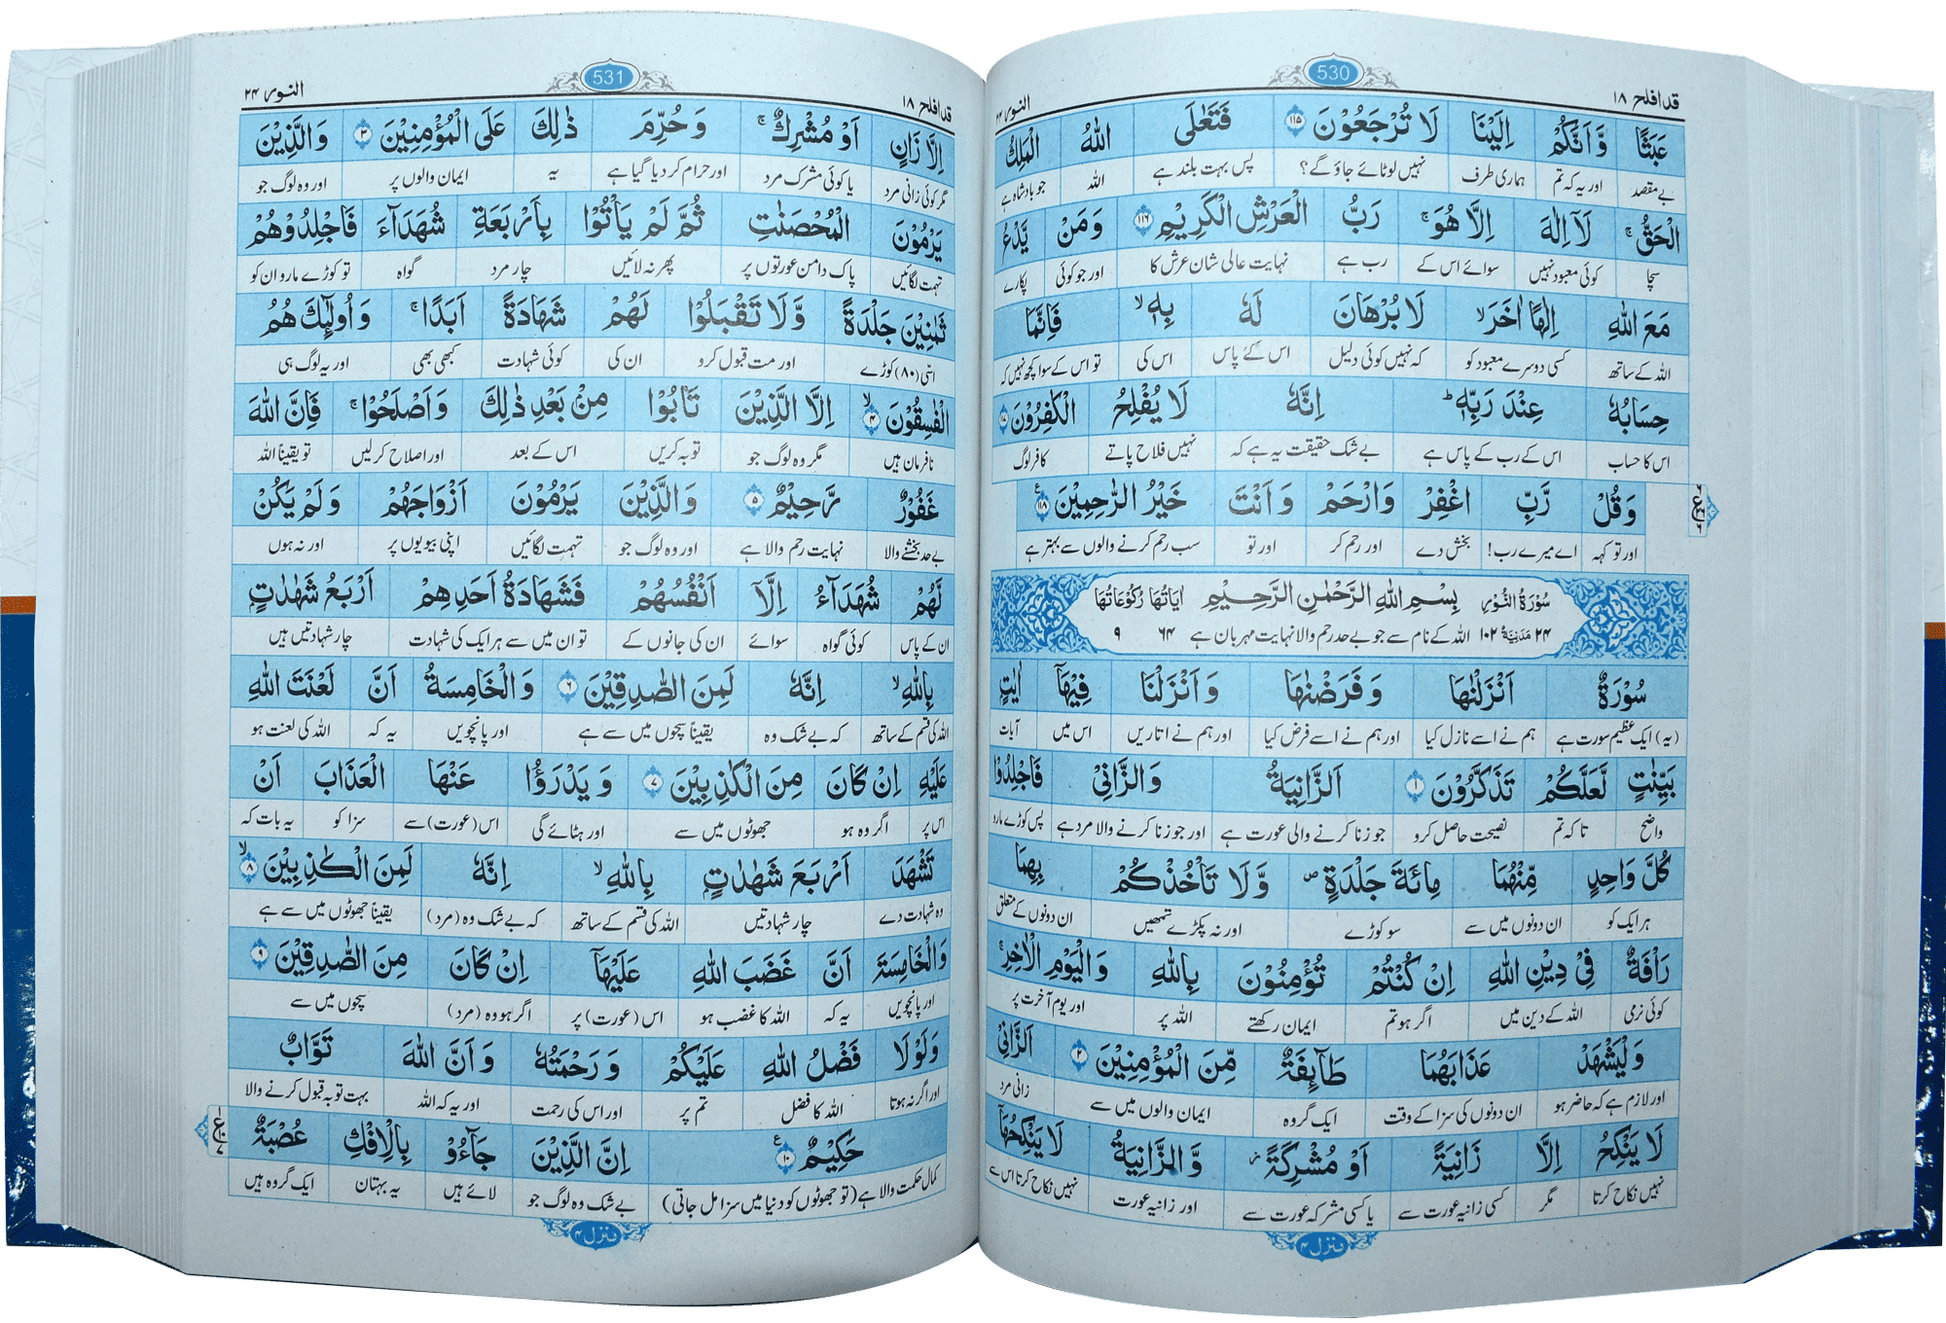 قد افلح ۱۸ 530 النور ۲۴
عَبَثًا وَّاَنَّكُمْ اِلَيْنَا لَا تُرْجَعُوْنَ ۱۱۵ فَتَعٰلَى اللّٰهُ الْمَلِكُ
بے مقصد اور یہ کہ تم ہماری طرف نہیں لوٹائے جاؤ گے؟ پس بہت بلند ہے اللہ جو بادشاہ ہے
الْحَقُّ ۚ لَآ اِلٰهَ اِلَّا هُوَ ۚ رَبُّ الْعَرْشِ الْكَرِيْمِ ۱۱۶ وَمَنْ يَّدْعُ
سچا کوئی معبود نہیں سوائے اس کے رب ہے نہایت عالی شان عرش کا اور جو کوئی پکارے
مَعَ اللّٰهِ اِلٰهًا اٰخَرَ ۙ لَا بُرْهَانَ لَهٗ بِهٖ ۙ فَاِنَّمَا
اللہ کے ساتھ کسی دوسرے معبود کو کہ نہیں کوئی دلیل اس کے پاس اس کی تو اس کے سوا کچھ نہیں کہ
حِسَابُهٗ عِنْدَ رَبِّهٖ ؕ اِنَّهٗ لَا يُفْلِحُ الْكٰفِرُوْنَ ۱۱۷
اس کا حساب اس کے رب کے پاس ہے بے شک حقیقت یہ ہے کہ نہیں فلاح پاتے کافر لوگ
وَقُلْ رَّبِّ اغْفِرْ وَارْحَمْ وَاَنْتَ خَيْرُ الرّٰحِمِيْنَ ۱۱۸
اور تو کہہ اے میرے رب! بخش دے اور رحم کر اور تو سب رحم کرنے والوں سے بہتر ہے
سُوْرَةُ النُّوْرِ بِسْمِ اللّٰهِ الرَّحْمٰنِ الرَّحِيْمِ اٰيَاتُهَا رُكُوْعَاتُهَا
۲۴ مَدَنِيَّةٌ ۱۰۲ اللہ کے نام سے جو بے حد رحم والا نہایت مہربان ہے ۶۴ ۹
سُوْرَةٌ اَنْزَلْنٰهَا وَفَرَضْنٰهَا وَاَنْزَلْنَا فِيْهَآ اٰيٰتٍۭ
(یہ) ایک عظیم سورت ہے ہم نے اسے نازل کیا اور ہم نے اسے فرض کیا اور ہم نے اتاریں اس میں آیات
بَيِّنٰتٍ لَّعَلَّكُمْ تَذَكَّرُوْنَ ۱ اَلزَّانِيَةُ وَالزَّانِيْ فَاجْلِدُوْا
واضح تا کہ تم نصیحت حاصل کرو جو زنا کرنے والی عورت ہے اور جو زنا کرنے والا مرد ہے پس کوڑے مارو
كُلَّ وَاحِدٍ مِّنْهُمَا مِائَةَ جَلْدَةٍ ۪ وَّلَا تَاْخُذْكُمْ بِهِمَا
ہر ایک کو ان دونوں میں سے سو کوڑے اور نہ پکڑے تمہیں ان دونوں کے متعلق
رَاْفَةٌ فِيْ دِيْنِ اللّٰهِ اِنْ كُنْتُمْ تُؤْمِنُوْنَ بِاللّٰهِ وَالْيَوْمِ الْاٰخِرِ ۚ
کوئی نرمی اللہ کے دین میں اگر ہو تم ایمان رکھتے اللہ پر اور یوم آخرت پر
وَلْيَشْهَدْ عَذَابَهُمَا طَآئِفَةٌ مِّنَ الْمُؤْمِنِيْنَ ۲ اَلزَّانِيْ
اور لازم ہے کہ حاضر ہو ان دونوں کی سزا کے وقت ایک گروہ ایمان والوں میں سے زانی مرد
لَا يَنْكِحُ اِلَّا زَانِيَةً اَوْ مُشْرِكَةً ؗ وَّالزَّانِيَةُ لَا يَنْكِحُهَآ
نہیں نکاح کرتا مگر کسی زانیہ عورت سے یا کسی مشرکہ عورت سے اور زانیہ عورت نہیں نکاح کرتا اس سے
منزل ۴
قد افلح ۱۸ 531 النور ۲۴
اِلَّا زَانٍ اَوْ مُشْرِكٌ ۚ وَحُرِّمَ ذٰلِكَ عَلَى الْمُؤْمِنِيْنَ ۳ وَالَّذِيْنَ
مگر کوئی زانی مرد یا کوئی مشرک مرد اور حرام کر دیا گیا ہے یہ ایمان والوں پر اور وہ لوگ جو
يَرْمُوْنَ الْمُحْصَنٰتِ ثُمَّ لَمْ يَاْتُوْا بِاَرْبَعَةِ شُهَدَآءَ فَاجْلِدُوْهُمْ
تہمت لگائیں پاک دامن عورتوں پر پھر نہ لائیں چار مرد گواہ تو کوڑے مارو ان کو
ثَمٰنِيْنَ جَلْدَةً وَّلَا تَقْبَلُوْا لَهُمْ شَهَادَةً اَبَدًا ۚ وَاُولٰٓئِكَ هُمُ
اسّی (۸۰) کوڑے اور مت قبول کرو ان کی کوئی شہادت کبھی بھی اور یہ لوگ ہی
الْفٰسِقُوْنَ ۙ ۴ اِلَّا الَّذِيْنَ تَابُوْا مِنْۢ بَعْدِ ذٰلِكَ وَاَصْلَحُوْا ۚ فَاِنَّ اللّٰهَ
نافرمان ہیں مگر وہ لوگ جو توبہ کریں اس کے بعد اور اصلاح کر لیں تو یقیناً اللہ
غَفُوْرٌ رَّحِيْمٌ ۵ وَالَّذِيْنَ يَرْمُوْنَ اَزْوَاجَهُمْ وَلَمْ يَكُنْ
بے حد بخشنے والا نہایت رحم والا ہے اور وہ لوگ جو تہمت لگائیں اپنی بیویوں پر اور نہ ہوں
لَّهُمْ شُهَدَآءُ اِلَّآ اَنْفُسُهُمْ فَشَهَادَةُ اَحَدِهِمْ اَرْبَعُ شَهٰدٰتٍۭ
ان کے پاس کوئی گواہ سوائے ان کی جانوں کے تو ان میں سے ہر ایک کی شہادت چار شہادتیں ہیں
بِاللّٰهِ ۙ اِنَّهٗ لَمِنَ الصّٰدِقِيْنَ ۶ وَالْخَامِسَةُ اَنَّ لَعْنَتَ اللّٰهِ
اللہ کی قسم کے ساتھ کہ بے شک وہ یقیناً سچوں میں سے ہے اور پانچویں یہ کہ اللہ کی لعنت ہو
عَلَيْهِ اِنْ كَانَ مِنَ الْكٰذِبِيْنَ ۷ وَيَدْرَؤُا عَنْهَا الْعَذَابَ اَنْ
اس پر اگر وہ ہو جھوٹوں میں سے اور ہٹائے گی اس (عورت) سے سزا کو یہ بات کہ
تَشْهَدَ اَرْبَعَ شَهٰدٰتٍۭ بِاللّٰهِ ۙ اِنَّهٗ لَمِنَ الْكٰذِبِيْنَ ۙ ۸
وہ شہادت دے چار شہادتیں اللہ کی قسم کے ساتھ کہ بے شک وہ (مرد) یقیناً جھوٹوں میں سے ہے
وَالْخَامِسَةَ اَنَّ غَضَبَ اللّٰهِ عَلَيْهَآ اِنْ كَانَ مِنَ الصّٰدِقِيْنَ ۹
اور پانچویں یہ کہ اللہ کا غضب ہو اس (عورت) پر اگر ہو وہ (مرد) سچوں میں سے
وَلَوْلَا فَضْلُ اللّٰهِ عَلَيْكُمْ وَرَحْمَتُهٗ وَاَنَّ اللّٰهَ تَوَّابٌ
اور اگر نہ ہوتا اللہ کا فضل تم پر اور اس کی رحمت اور یہ کہ اللہ بہت توبہ قبول کرنے والا
حَكِيْمٌ ۱۰ اِنَّ الَّذِيْنَ جَآءُوْ بِالْاِفْكِ عُصْبَةٌ
کمال حکمت والا ہے (تو جھوٹوں کو دنیا میں سزا مل جاتی) بے شک وہ لوگ جو لائے ہیں یہ بہتان ایک گروہ ہیں
منزل ۴